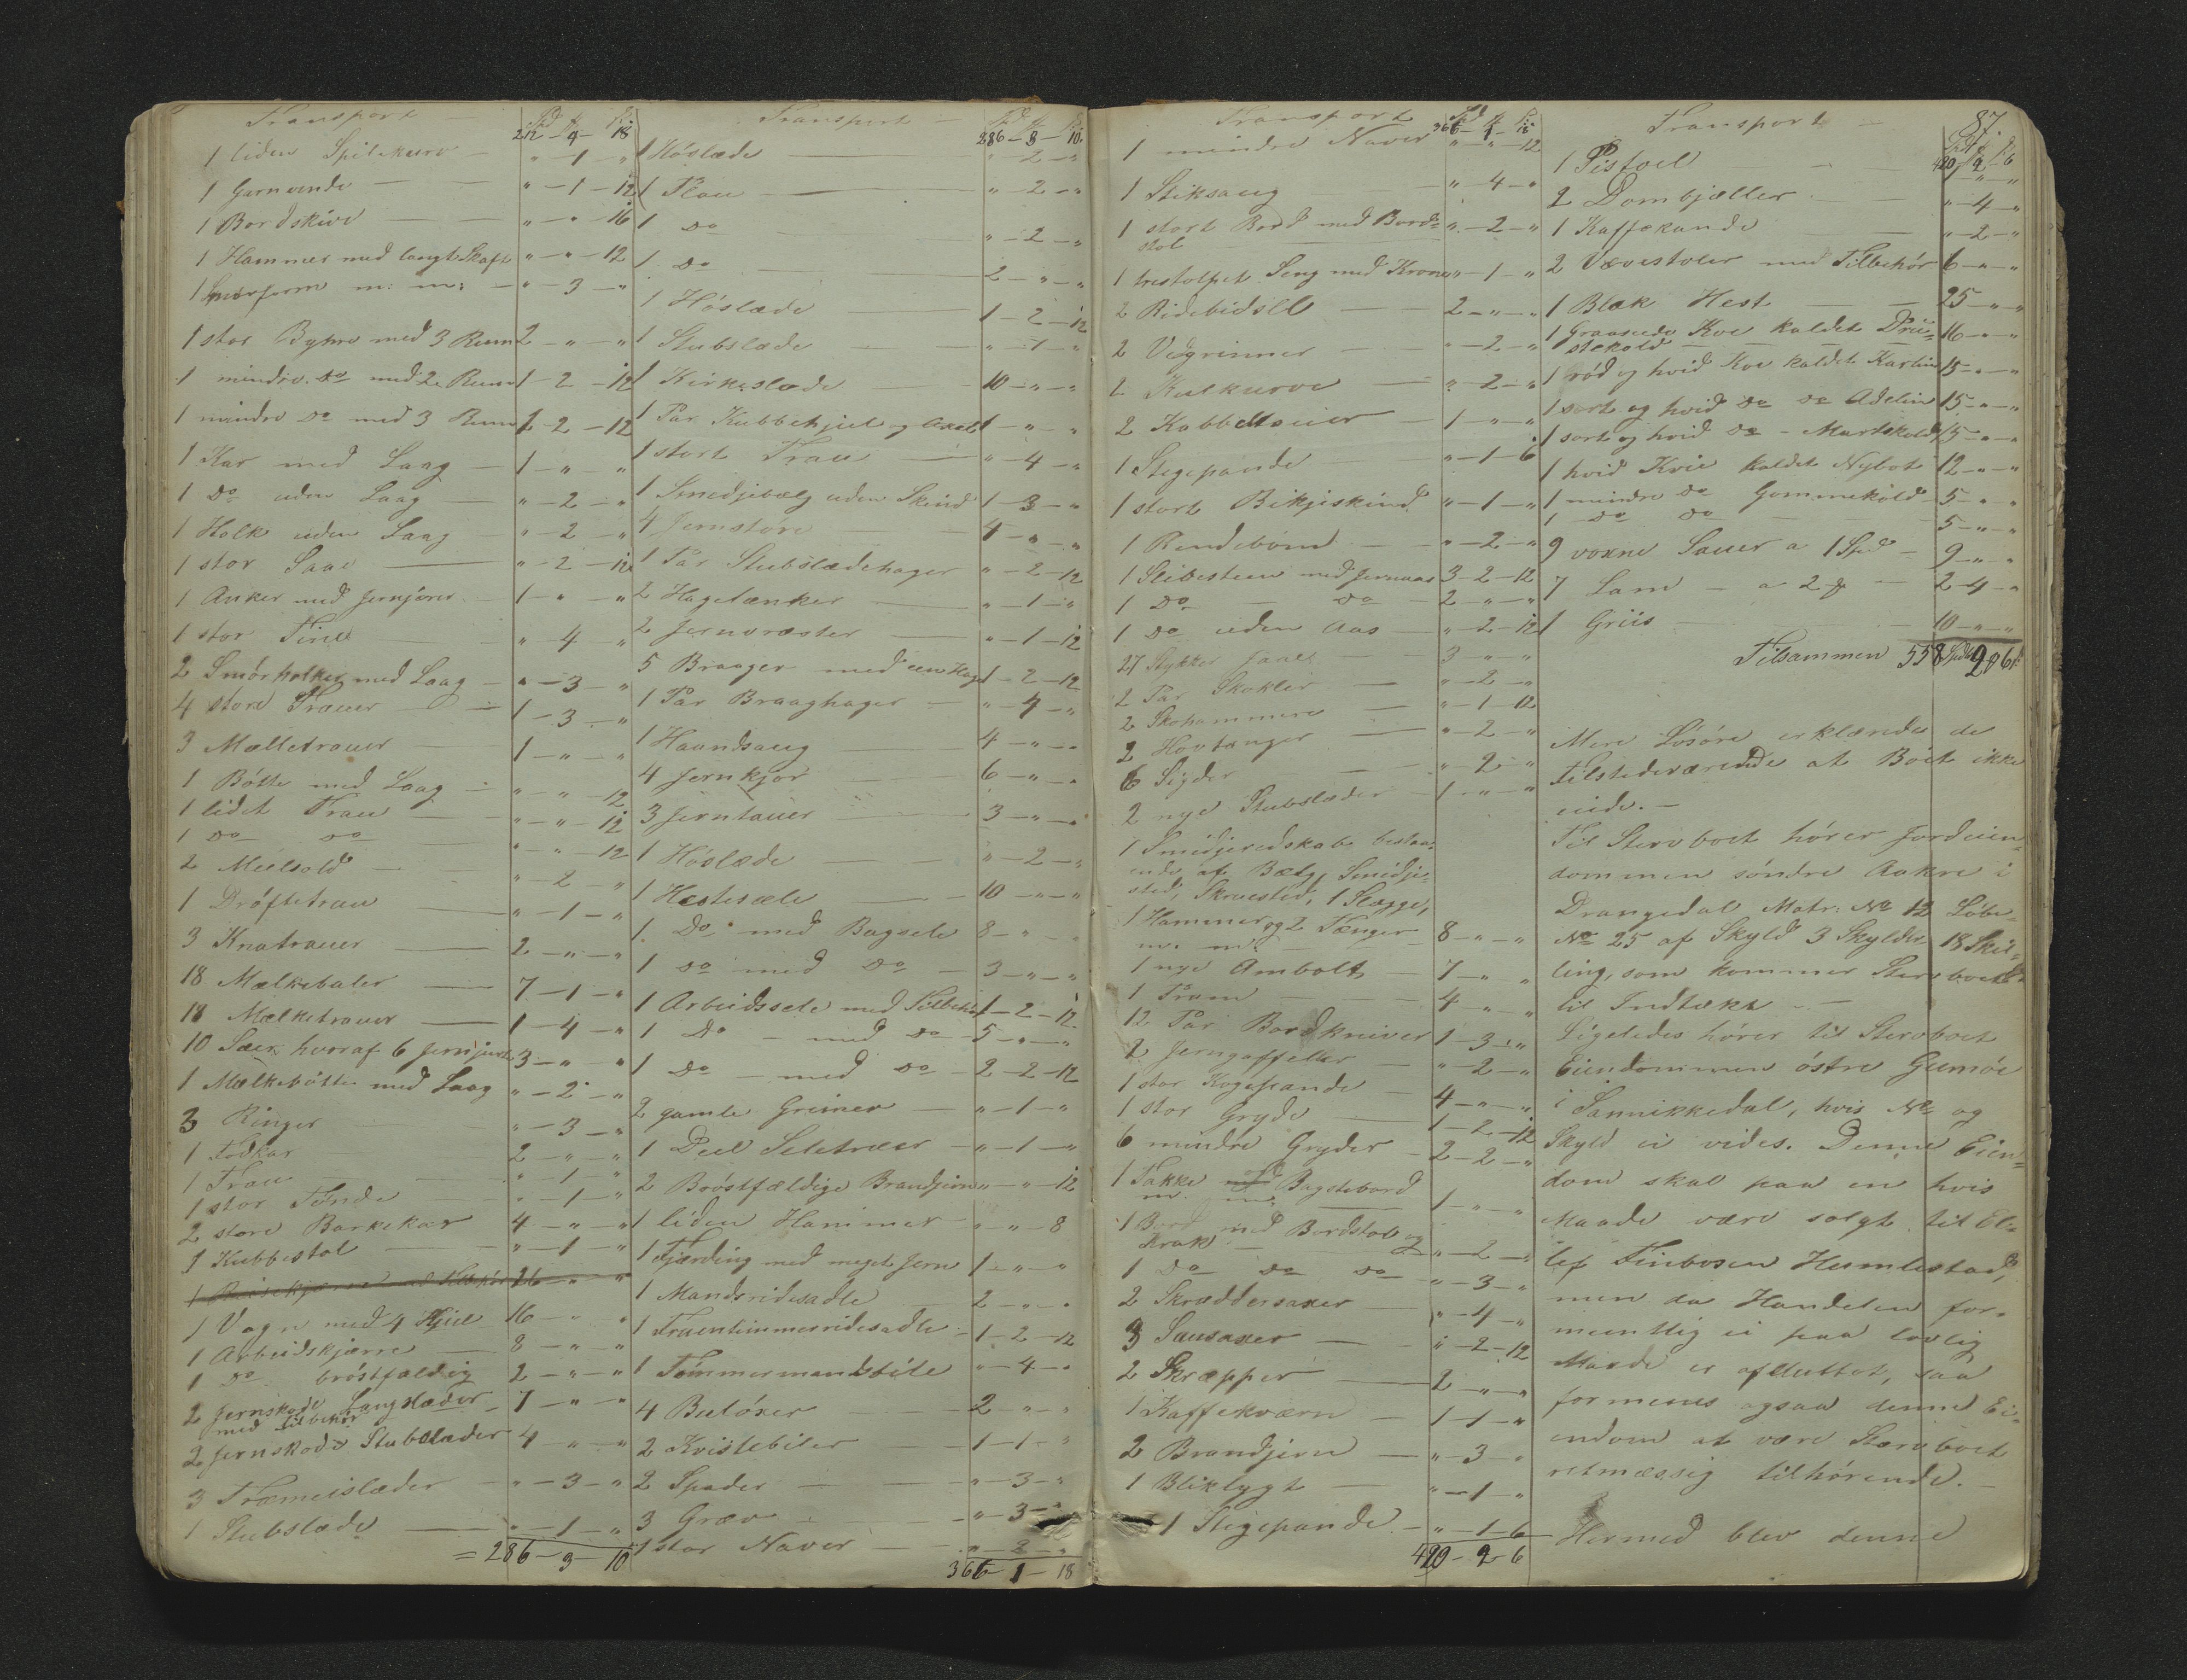 Transport — Spd ß
212 - 4 - 18
1 liden Spilekurv — " - 1 - "
1 Garnvinde — " - 1 - 12
1 Bordskive — " - " - 16
1 Hammer med langt Skaft " - " - 12
m: m: — " - 3 - "
1 stor Byhre med 3 Rum 2 - " - "
1 mindre Do med 2 Rum 1 - 2 - 12
1 mindre Do med 3 Rum 1 - 2 - 12
1 Kar med Laag — 1 - " - "
1 Do uden Laag — " - 2 - "
1 Holk uden Laag — " - 2 - "
1 stor Saae — " - 2 - 12
1 Anker med Jernjorer 1 - " - "
1 stor Tine — " - 4 - "
2 Smørholker med Laag — " - 3 - "
4 store Trauer — 1 - 3 - "
3 Mælletrauer — 1 - " - "
1 Bøtte med Laag — " - " - 12
1 lidet Trau — " - " - 12
1 Do Do — " - " - 12
2 Meelsold — " - 2 - "
1 Drøftetrau — " - 1 - "
3 Knatrauer — 2 - " - "
18 Mælkebaler — 7 - 1 - "
18 Mælketrauer — 1 - 4 - "
10 Saer hvoraf 6 3 - " - "
1 Mælkebøtte med Laag " - 2 - "
3 Ringer " - 3 - "
1 Fodkar 2 - " - "
1 Trau " - 1 - "
1 stor Tønde " - 1 - "
2 store Barkekar 4 - " - "
1 Kubbestol — " - 1 - "
1 Vogn med 4 Hjul 16 - " - "
1 Arbeidskjærre — 8 - " - "
1 Do brøstfældig 2 - " - "
2 Jernskode Langslæder 7 - " - "
med tilbehør
2 Jernskode Stubslæder 4 - " - "
3 Træmeislæder " - 3 - "
1 Stubslæde — " - 1 - "
= 286 - 3 - 10
Transport — Spd ß
286 - 3 - 10
1 Høslæde — " - 2 - "
1 Plou — " - 2 - "
1 Do " - 2 - "
1 Do — 2 - " - "
1 Høslæde 1 - 2 - 12
1 Stubslæde — " - 1 - "
1 Kirkeslæde — 10 - " - "
1 Par Kubbehjul og Axel 1 - " - "
1 stort Trau " - 4 - "
1 Smedjebælg uden Skind 1 - 3 - "
4 Jernstøre — 4 - " - "
1 Par Stubslædehager " - 2 - 12
2 Hagelænker — " - 1 - "
2 — " - 1 - 12
5 Braager med een Hage 1 - 2 - 12
1 Par Braaghager — " - 4 - "
1 Haandsaug — 4 - " - "
4 Jernkjør 6 - " - "
3 Jerntauer 3 - " - "
1 Høslæde — " - 2 - "
1 Hestesele — 10 - " - "
1 Do med Bagsele 8 - " - "
1 Do med Do — 3 - " - "
1 Arbeidssele med Tilbehør 1 - 2 - 12
1 Do - med Do 5 - " - "
1 Do - med Do 2 - 2 - 12
2 gamle Greiner — " - 1 - "
1 Deel Seletræer — " - 1 - "
2 Brøstfældige Brandjern " - " - 12
1 liden Hammer — " - " - 8
1 Fjerding med meget Jern 1 - " - "
1 Mandsridesadle 2 - " - "
1 Fruentimmerridesadle 1 - 2 - 12
1 Tømmermandsbile " - 4 - "
4 Buløxer — 2 - " - "
2 Kvistebiler — 1 - 1 - "
2 Spader — " - 3 - "
3 Grev — " - 3 - "
1 stor Naver — " - 2 - "
366 - 1 - 18
Transport Spd ß
366 - 1 - 18
1 mindre Naver " - " - 12
1 Stiksaug — " - 4 - "
1 stort Bord med Bord= " - 2 - "
stol
1 trestolpet Seng med Krone " - 1 - "
2 Ridebidsel — 2 - " - "
2 Vegrinner — " - 2 - "
2 Kulkurve — " - 2 - "
2 Kobbeltauer — 1 - " - "
1 Stegepande — " - 1 - 6
1 stort Bikjeskind " - 1 - "
1 Rendebom — " - 2 - "
1 Slibesteen med Jernaas 3 - 2 - 12
1 Do — Do — 2 - " - "
1 Do uden Aas — " - 2 - 12
27 Stykker — 3 - " - "
2 Par Skokler — " - 2 - "
2 Skohammere — " - 1 - 12
2 Hovtænger — " - 2 - "
6 Sigder — " - 2 - "
2 nye Stubslæder — 1 - " - "
1 Smedjeredskab bestaa=
ende af Bælg, Smedje=
sted, Skruested, 1 Slægge,
1 Hammer og 2 Tænger 8 - " - "
m. m.
1 nye Ambolt — 7 - " - "
1 Pram — 4 - " - "
12 Par Bordkniver 1 - 3 - "
2 Jerngafeller — " - 2 - "
1 stor Kogepande — 4 - " - "
1 stor Gryde 1 - 2 - 12
6 mindre Gryder — 2 - 2 - "
1 Takke og Bagstebord 1 - " - "
m. m.
1 Bord med Bordstol og " - 2 - "
Krak
1 Do Do Do — " - 3 - "
2 Skræddersaxer — " - 4 - "
3 Sausaxer — " - 2 - 12
2 Skræpper — 2 - " - "
1 Kaffekværn — 1 - 1 - "
2 Brandjern — " - 3 - "
1 Bliklygt — " - 1 - "
1 Stegepande — " - 1 - 6
420 - 2 - 6
87
Transport — Spd ß
420 - 2 - 6
1 Pistoel — " - "
2 Dombjæller — " - 4 - "
1 Kaffekande " - 2 - "
2 Vævstoler med Tilbehør 6 - " - "
1 Blak Hest — 25 - " - "
1 Koe kaldet 16 - " - "
1 rød og hvid Koe kaldet 15 - " - "
1 sort og hvid Do Do Adelin 15 - " - "
1 sort og hvid Do - 15 - " - "
1 hvid Kvie kaldet Nybot 12 - " - "
1 mindre Do Gommekold 5 - " - "
1 Do Do — 5 - " - "
9 voxne Sauer a 1 Spd — 9 - " - "
7 Lam — a 2 ß — 2 - 4 - "
1 Griis — 10 - " - "
Tilsammen 558 Spd 2 ß 6
Mere Løsøre erklærede de
tilstedeværende at Boet ikke
eiede. —
Til Stervboet hører Jordeien=
dommen søndre Aakre i
Drangedal Matr: No 12 Løbe=
No 25 af Skyld 3 Skylddr 18 Skil=
ling, som kommer Stervboet
til Indtækt —
Ligeledes hører til Stervboet
Eiendommen østre Gumøe
i Sannikkedal, hvis No og
Skyld ei vides. Denne Eien=
dom skal paa en hvis
Maade være solgt til El=
lef Finbosen Humlestad,
men da Handelen for=
meentlig ei paa lovlig
Maade er afsluttet, saa
formenes ogsaa denne Ei=
endom at være Stervboet
retmæssig tilhørende. —
Hermed blev denne